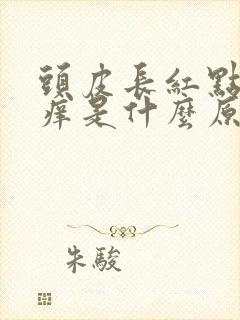 頭皮長紅點
痒是什麼原
朱駿